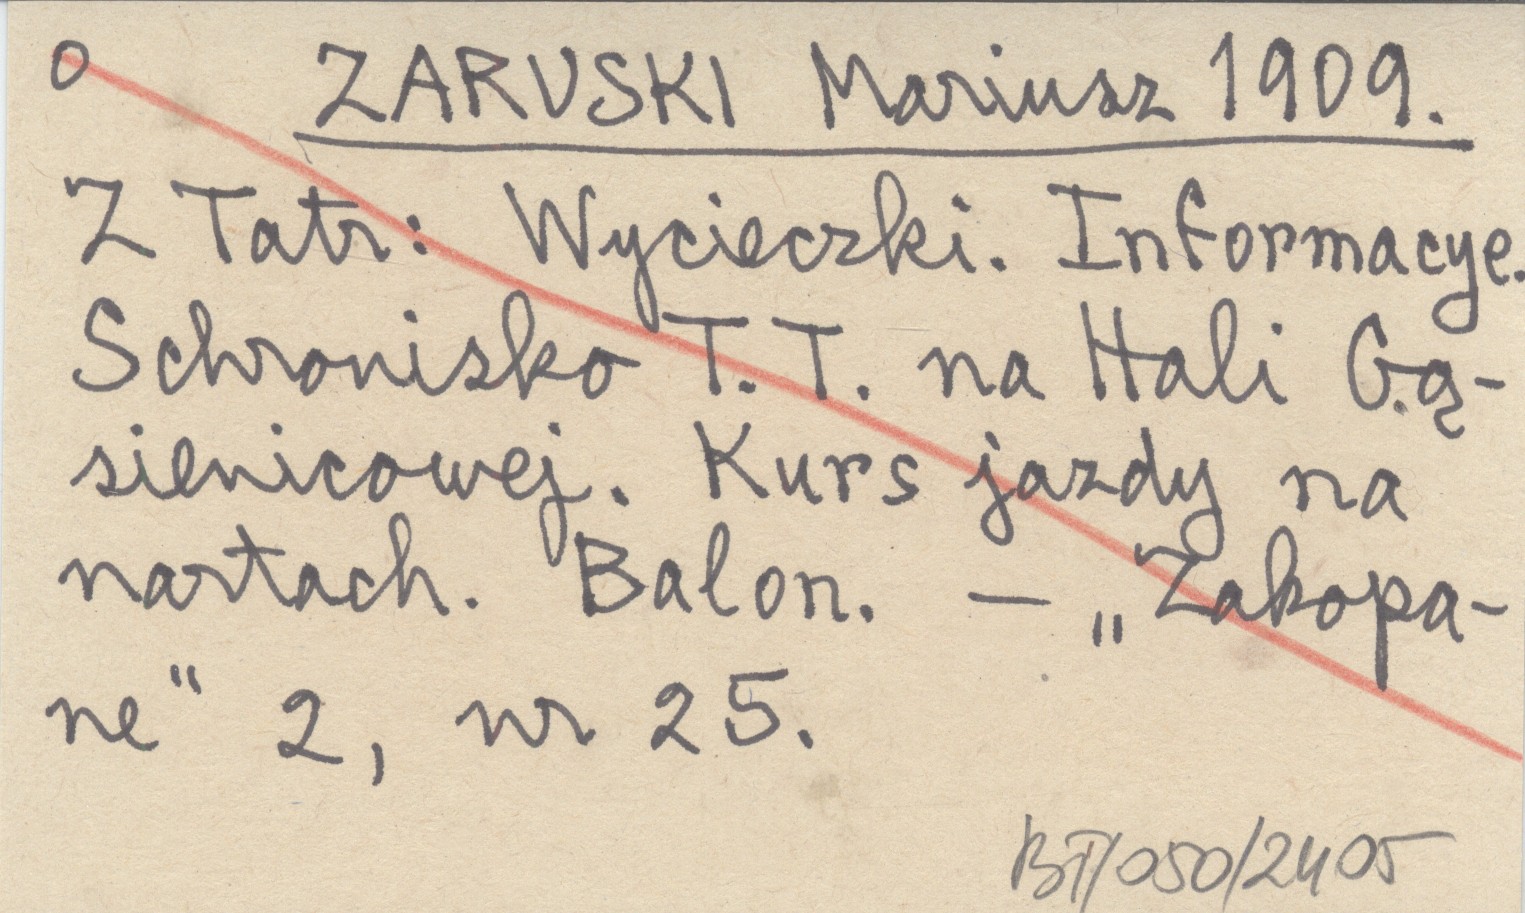 O ZARUSKI Mariusz 1909.
Z Tatr: Wycieczki. Informacye.
Schronisko T.T. na Hali Gą-
sienicowej. Kurs jazdy na
nartach. Balon. — „Zakopa-
ne" 2, nr 25.
BT/050/2405